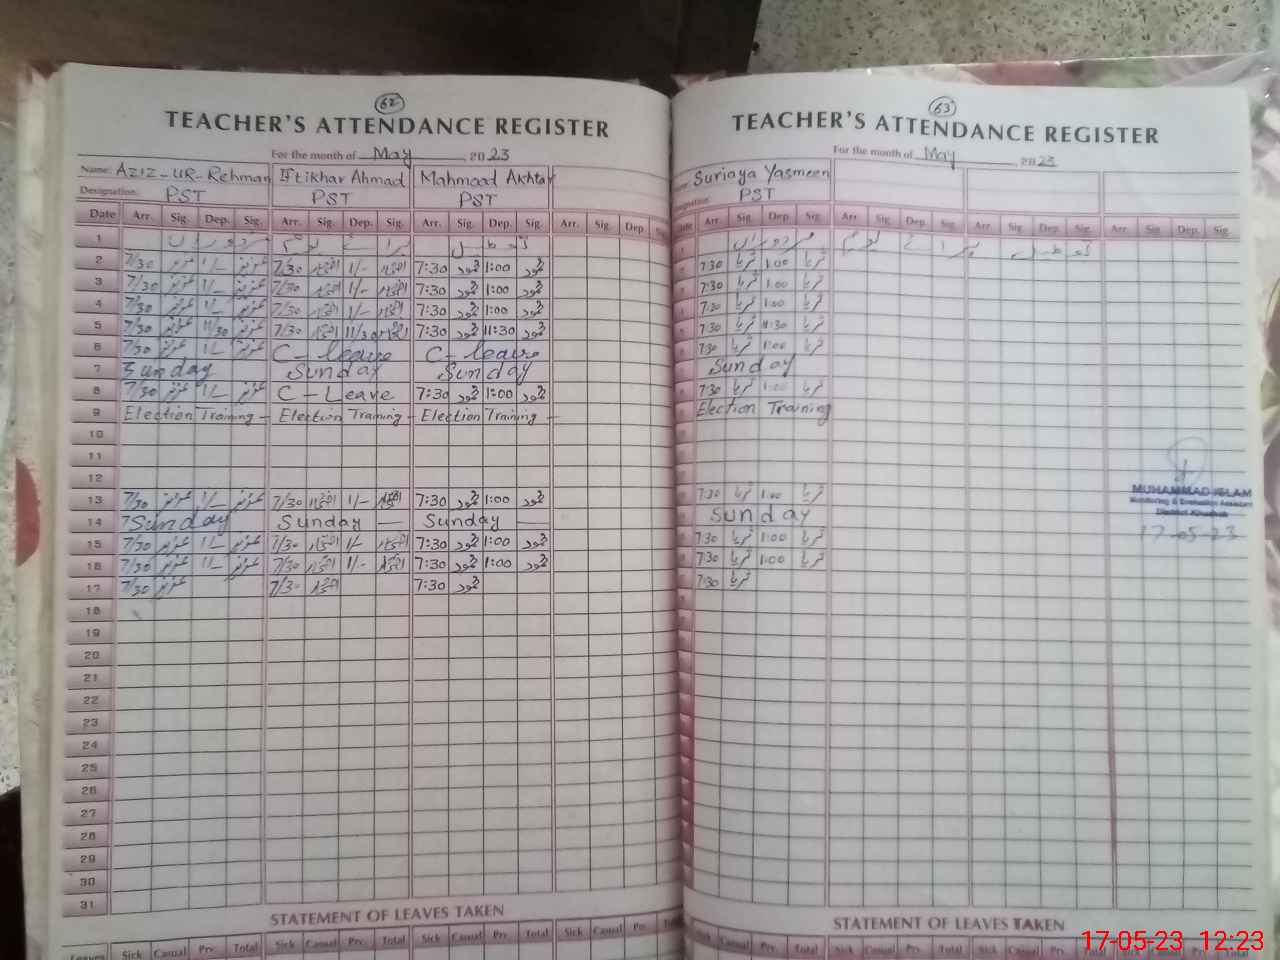 62
TEACHER'S ATTENDANCE REGISTER
For the month of May, 2023
Name: Aziz-ur-Rehman Iftikhar Ahmad Mahmood Akhtar
Designation: PST PST PST
Date Arr. Sig. Dep. Sig. Arr. Sig. Dep. Sig. Arr. Sig. Dep. Sig. Arr. Sig. Dep. Sig.
1
2 7/30 عزیز 1/- عزیز 7/30 1/- 7:30 محمود 1:00 محمود
3 7/30 عزیز 1/- عزیز 7/30 1/- 7:30 محمود 1:00 محمود
4 7/30 عزیز 1/- عزیز 7/30 1/- 7:30 محمود 1:00 محمود
5 7/30 عزیز 11/30 عزیز 7/30 11/30 7:30 محمود 11:30 محمود
6 7/30 عزیز 1/- عزیز C-leave C-leave
7 Sunday Sunday Sunday
8 7/30 عزیز 1/- عزیز C-Leave 7:30 محمود 1:00 محمود
9 Election Training - Election Training - Election Training -
10
11
12
13 7/30 عزیز 1/- عزیز 7/30 1/- 7:30 محمود 1:00 محمود
14 Sunday Sunday — Sunday —
15 7/30 عزیز 1/- عزیز 7/30 1/- 7:30 محمود 1:00 محمود
16 7/30 عزیز 1/- عزیز 7/30 1/- 7:30 محمود 1:00 محمود
17 7/30 عزیز 7/30 7:30 محمود
18
19
20
21
22
23
24
25
26
27
28
29
30
31
STATEMENT OF LEAVES TAKEN
Leaves Sick Casual Prv. Total Sick Casual Prv. Total Sick Casual Prv. Total Sick Casual Prv. Total
63
TEACHER'S ATTENDANCE REGISTER
For the month of May, 2023
Name: Suriaya Yasmeen
Designation: PST
Date Arr. Sig. Dep. Sig. Arr. Sig. Dep. Sig. Arr. Sig. Dep. Sig. Arr. Sig. Dep. Sig.
7:30 ثریا 1:00 ثریا
7:30 ثریا 1:00 ثریا
7:30 ثریا 1:00 ثریا
7:30 ثریا 11:30 ثریا
7:30 ثریا 1:00 ثریا
Sunday
7:30 ثریا 1:00 ثریا
Election Training
7:30 ثریا 1:00 ثریا
Sunday
7:30 ثریا 1:00 ثریا
7:30 ثریا 1:00 ثریا
7:30 ثریا
MUHAMMAD ISLAM
Monitoring & Evaluation Assistant
District
17-05-23
STATEMENT OF LEAVES TAKEN
Sick Casual Prv. Total Sick Casual Prv. Total Sick Casual Prv. Total Sick Casual Prv. Total
17-05-23 12:23